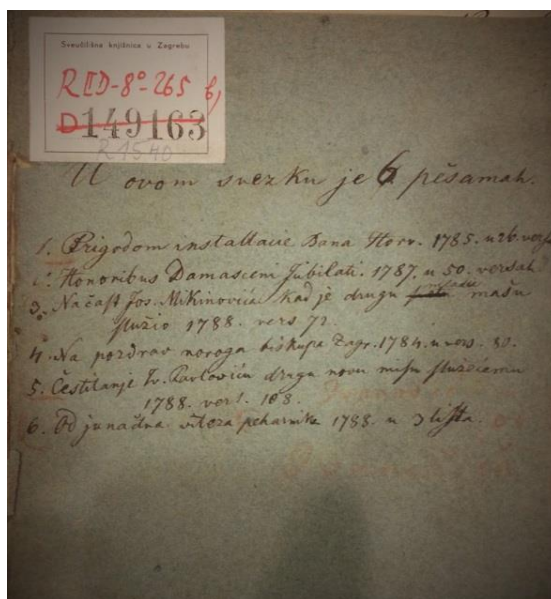 Sveučilišna knjižnica u Zagrebu
R II D-8°-265 b,
D149163
R 1540
U ovom svezku je 6 pěsamah.
1. Prigodom installacie Bana Horv. 1785. u 26. vers
2. Honoribus Damasceni Jubilati. 1787. u 50. versah
3. Na čast Jos. Mikinovića kad je drugu mladu mašu
služio 1788. vers 72.
4. Na pozdrav novoga biskupa Zagr. 1784. u vers. 80.
5. Čestitanje Iv. Pavloviću drugu novu mašu služećemu
1788. vers. 108.
6. Od junačna viteza peharnika 1788. u 3 lista.